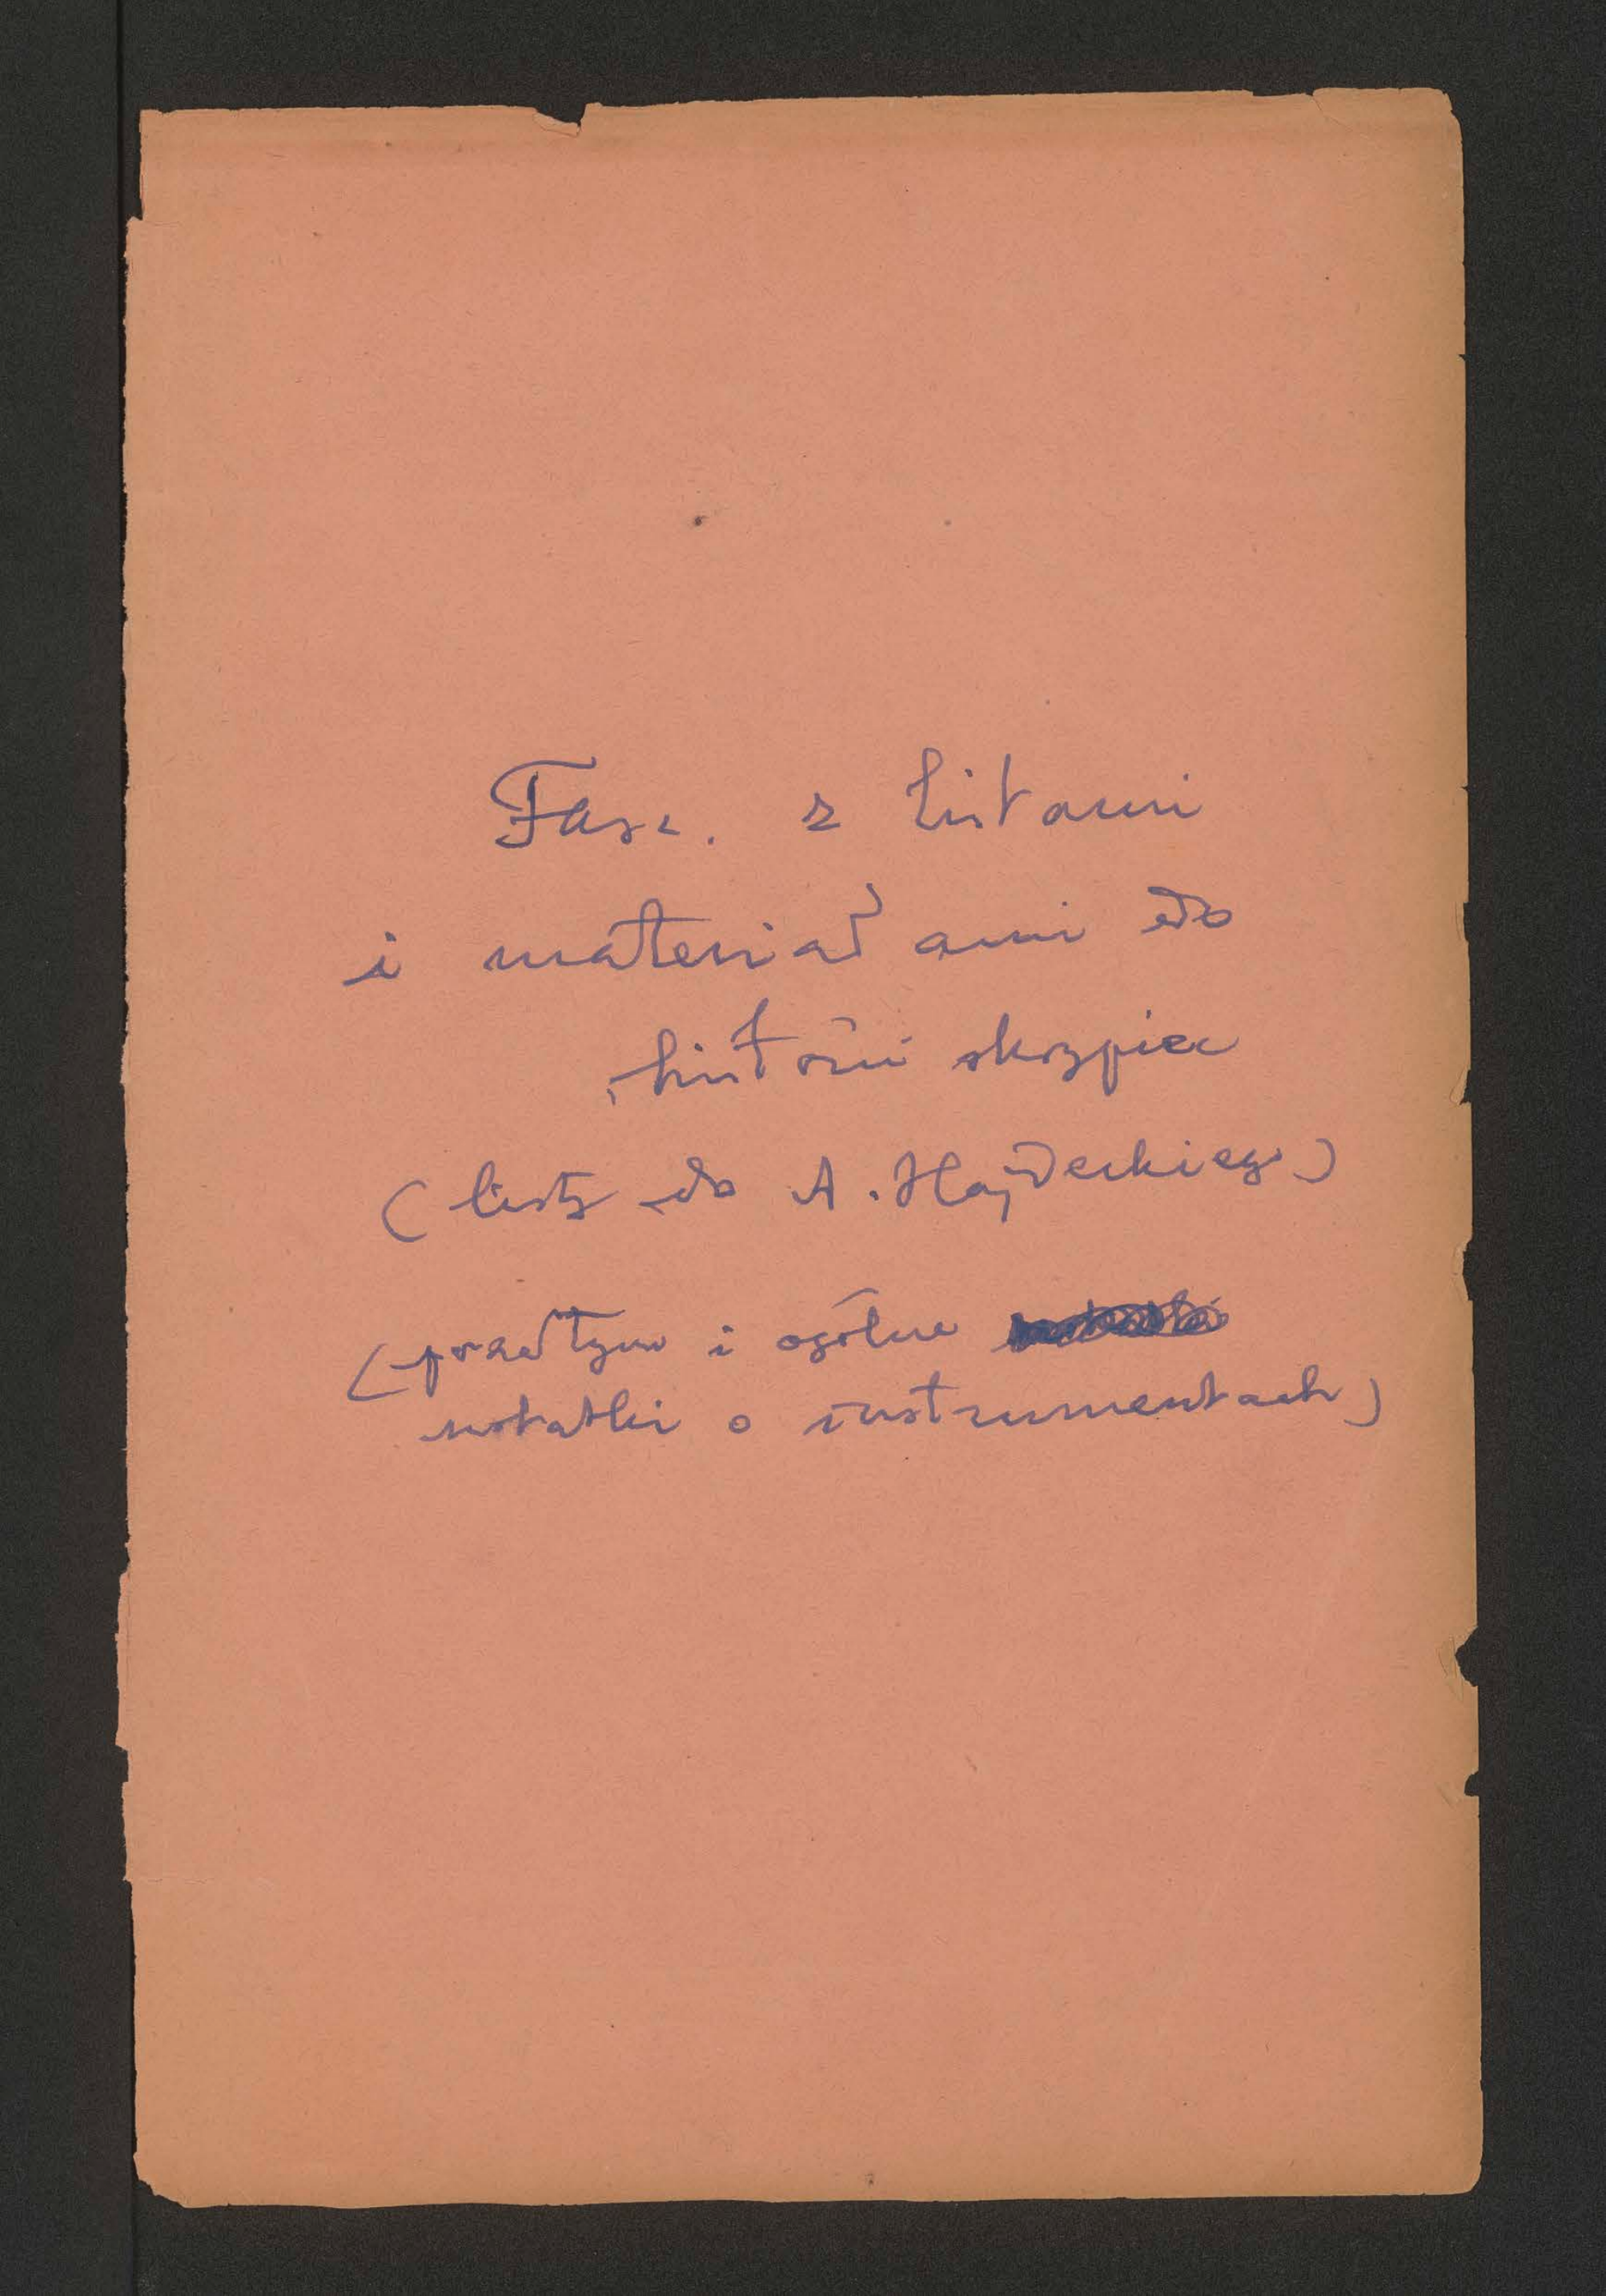 Fasc. z listami
i materiałami do
historii skrzypiec
(listy do A. Hajdeckiego)
(przedtym i ogólne
notatki o instrumentach)